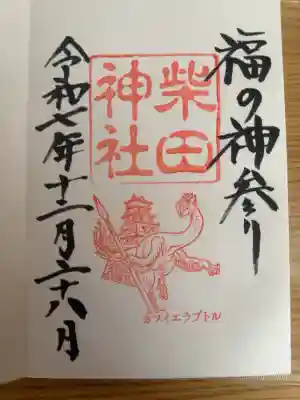 福の神参り
柴田
神社
フクイラプトル
令和七年十二月二十八日